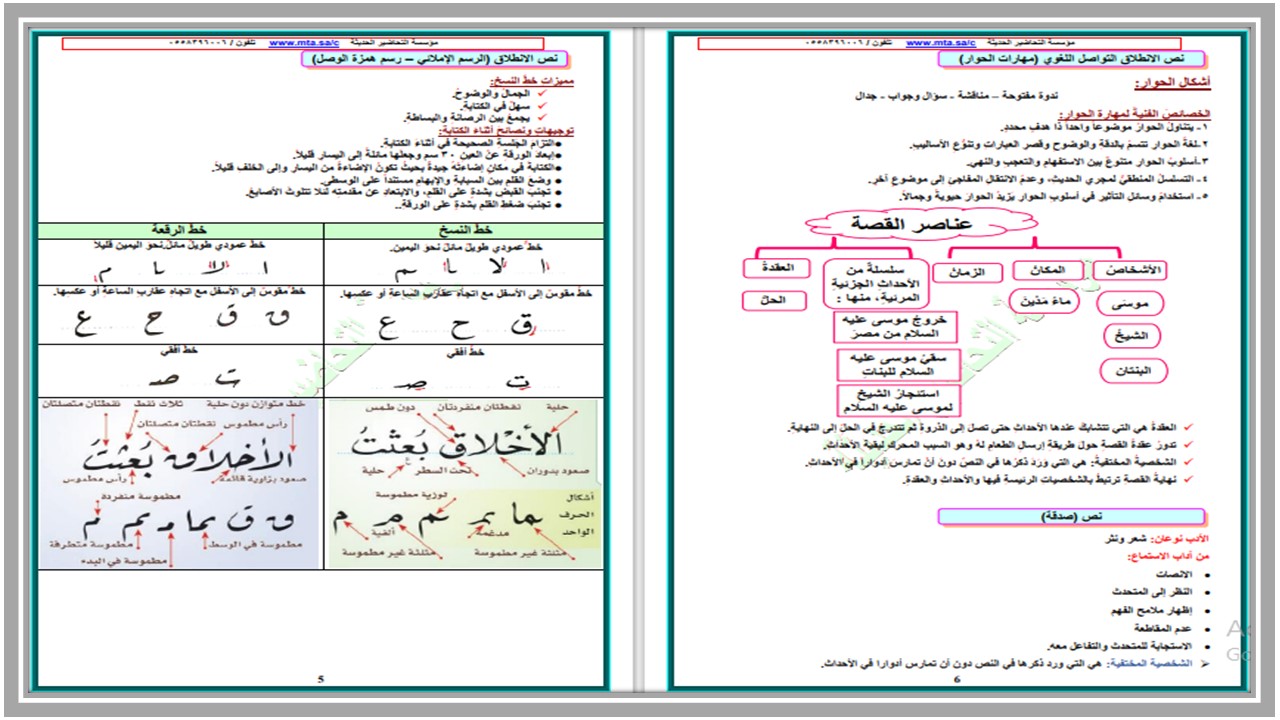 مؤسسة التحاضير الحديثة www.mta.sa/c تلفون / ٠٥٥٨٣٩٦٠٠٦
نص الانطلاق (الرسم الإملائي – رسم همزة الوصل)
مميزات خط النسخ:
✓ الجمال والوضوح.
✓ سهل في الكتابة.
✓ يجمع بين الرصانة والبساطة.
توجيهات ونصائح أثناء الكتابة:
●التزام الجلسة الصحيحة في أثناء الكتابة.
●إبعاد الورقة عن العين ٣٠ سم وجعلها مائلة إلى اليسار قليلاً.
●الكتابة في مكان إضاءته جيدة بحيث تكون الإضاءة من اليسار وإلى الخلف قليلاً.
● وضع القلم بين السبابة والإبهام مستنداً على الوسطى.
● تجنب القبض بشدة على القلم، والابتعاد عن مقدمته لئلا تتلوث الأصابع.
● تجنب ضغط القلم بشدة على الورقة..
خط النسخ
خط الرقعة
خط عمودي طويل مائل نحو اليمين.
خط عمودي طويل مائل نحو اليمين قليلاً
ا لا با م
ا لا با م
خط مقوس إلى الأسفل مع اتجاه عقارب الساعة أو عكسها.
خط مقوس إلى الأسفل مع اتجاه عقارب الساعة أو عكسها.
ق ح ع
ق ق ح ع
خط أفقي
خط أفقي
ت صـ
ت صـ
حلية نقطتان منفردتان دون طمس
الأخلاق بُعثتُ
صعود بدوران تحت السطر حلية
أشكال الحرف الواحد
لوزية مطموسة
مدغمة ألفية
مثلثة غير مطموسة مثلثة غير مطموسة
خط متوازن دون حلية ثلاث نقط نقطتان متصلتان
رأس مطموس نقطتان متصلتان
الأخلاق بُعثتُ
صعود بزاوية قائمة رأس مطموس
مطموسة منفردة
مطموسة في الوسط مطموسة متطرفة
مطموسة في البدء
5
مؤسسة التحاضير الحديثة www.mta.sa/c تلفون / ٠٥٥٨٣٩٦٠٠٦
نص الانطلاق التواصل اللغوي (مهارات الحوار)
أشكال الحوار:
ندوة مفتوحة – مناقشة - سؤال وجواب - جدال
الخصائص الفنية لمهارة الحوار:
١- يتناول الحوار موضوعاً واحداً ذا هدف محدد.
٢-لغة الحوار تتسم بالدقة والوضوح وقصر العبارات وتنوع الأساليب.
٣-أسلوب الحوار متنوع بين الاستفهام والتعجب والنهي.
٤- التسلسل المنطقي لمجرى الحديث، وعدم الانتقال المفاجئ إلى موضوع آخر.
٥- استخدام وسائل التأثير في أسلوب الحوار يزيد الحوار حيوية وجمالاً.
عناصر القصة
الأشخاص
المكان
الزمان
سلسلة من الأحداث الجزئية المرئية، منها :
العقدة
موسى
ماء مدين
الحل
خروج موسى عليه السلام من مصر
الشيخ
سقي موسى عليه السلام للبنات
البنتان
استئجار الشيخ لموسى عليه السلام
✓ العقدة هي التي تتشابك عندها الأحداث حتى تصل إلى الذروة ثم تتدرج في الحل إلى النهاية.
✓ تدور عقدة القصة حول طريقة إرسال الطعام له وهو السبب المحرك لبقية الأحداث.
✓ الشخصية المختفية: هي التي ورد ذكرها في النص دون أن تمارس أدوارا في الأحداث.
✓ نهاية القصة ترتبط بالشخصيات الرئيسة فيها والأحداث والعقدة.
نص (صدقة)
الأدب نوعان: شعر ونثر
من آداب الاستماع:
• الانصات
• النظر إلى المتحدث
• إظهار ملامح الفهم
• عدم المقاطعة
• الاستجابة للمتحدث والتفاعل معه.
➢ الشخصية المختفية: هي التي ورد ذكرها في النص دون أن تمارس أدوارا في الأحداث.
6